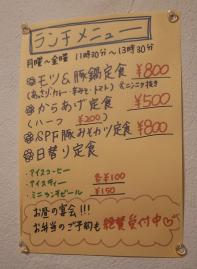 ランチメニュー
月曜〜金曜 11時30分〜13時30分
モツ&豚鍋定食 ¥800
(あっさり・カレー・辛みそ・トマト) ニンニク抜き
からあげ定食 ¥500
(ハーフ ¥200)
SPF豚みそカツ定食 ¥800
日替り定食
・アイスコーヒー
・アイスティー 各¥100
・ミニランチビール ¥150
お昼の宴会!!!
お弁当のご予約も絶賛受付中